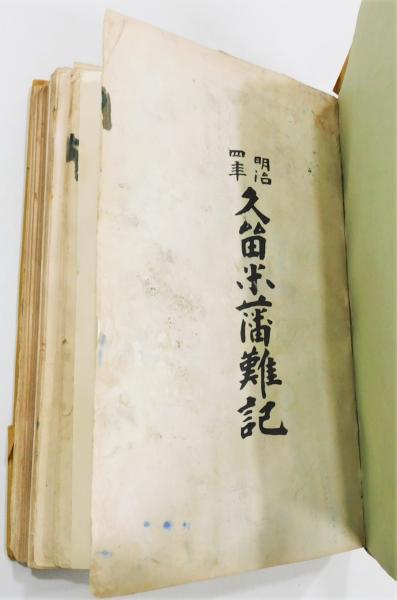 明治
四年
久留米藩難記